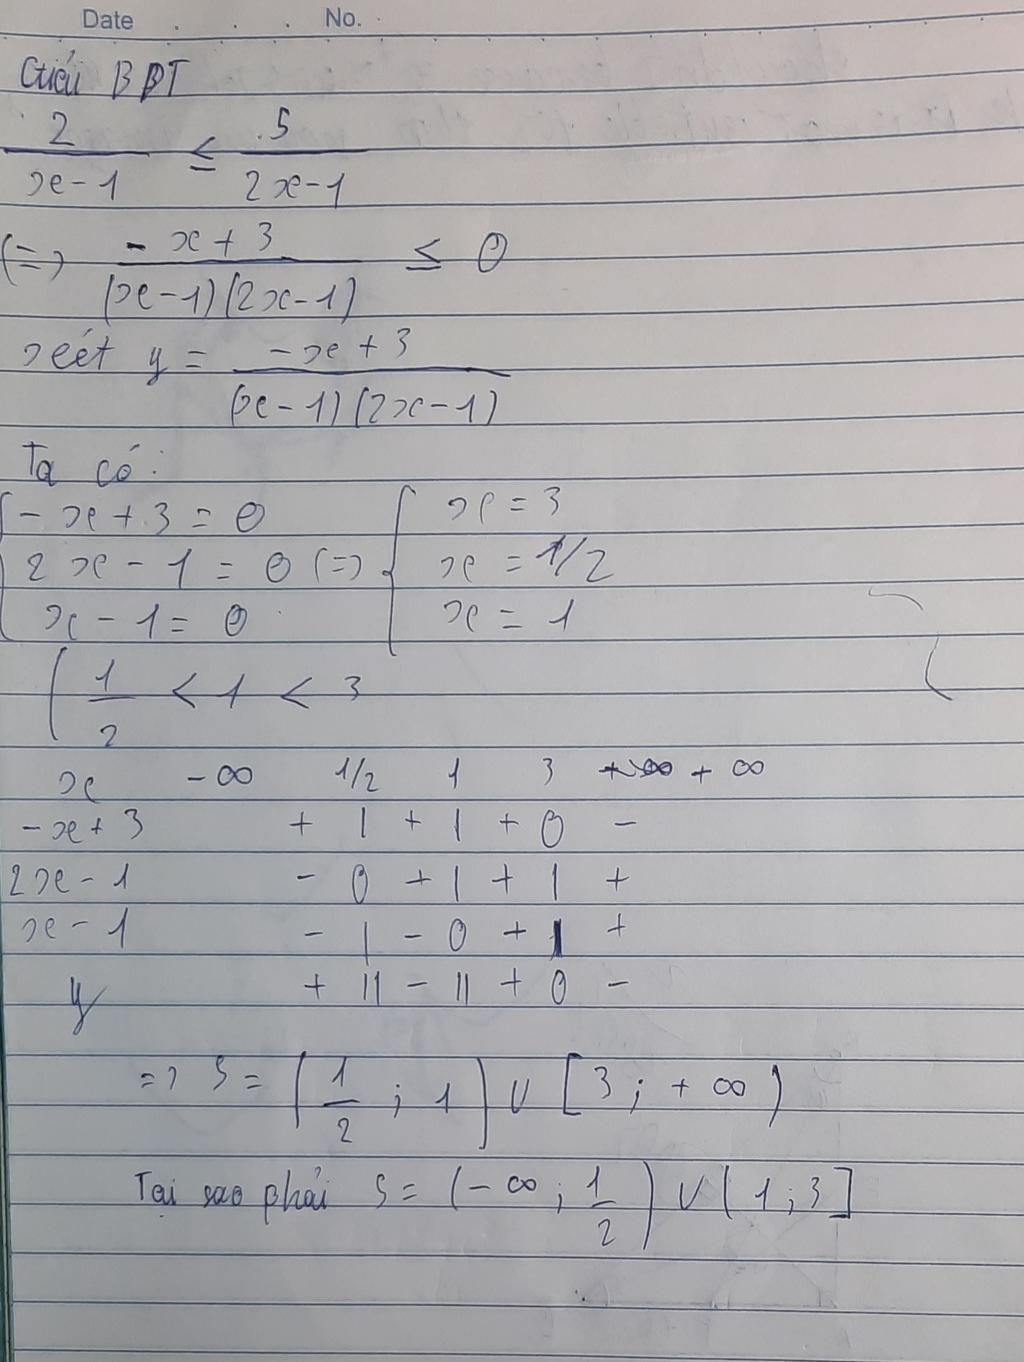 Date . . . No. .
Giải BPT
2/(x-1) ≤ 5/(2x-1)
(=) (-x+3)/((x-1)(2x-1)) ≤ 0
xét y = (-x+3)/((x-1)(2x-1))
Ta có:
{ -x+3=0 { x=3
2x-1=0 (=) x=1/2
x-1=0 x=1
( 1/2 < 1 < 3
x -∞ 1/2 1 3 + ∞
-x+3 + | + | + 0 -
2x-1 - 0 + | + | +
x-1 - | - 0 + | +
y + || - || + 0 -
=> S = (1/2 ; 1) ∪ [3; +∞)
Tại sao phải S = (-∞; 1/2) ∪ (1;3]